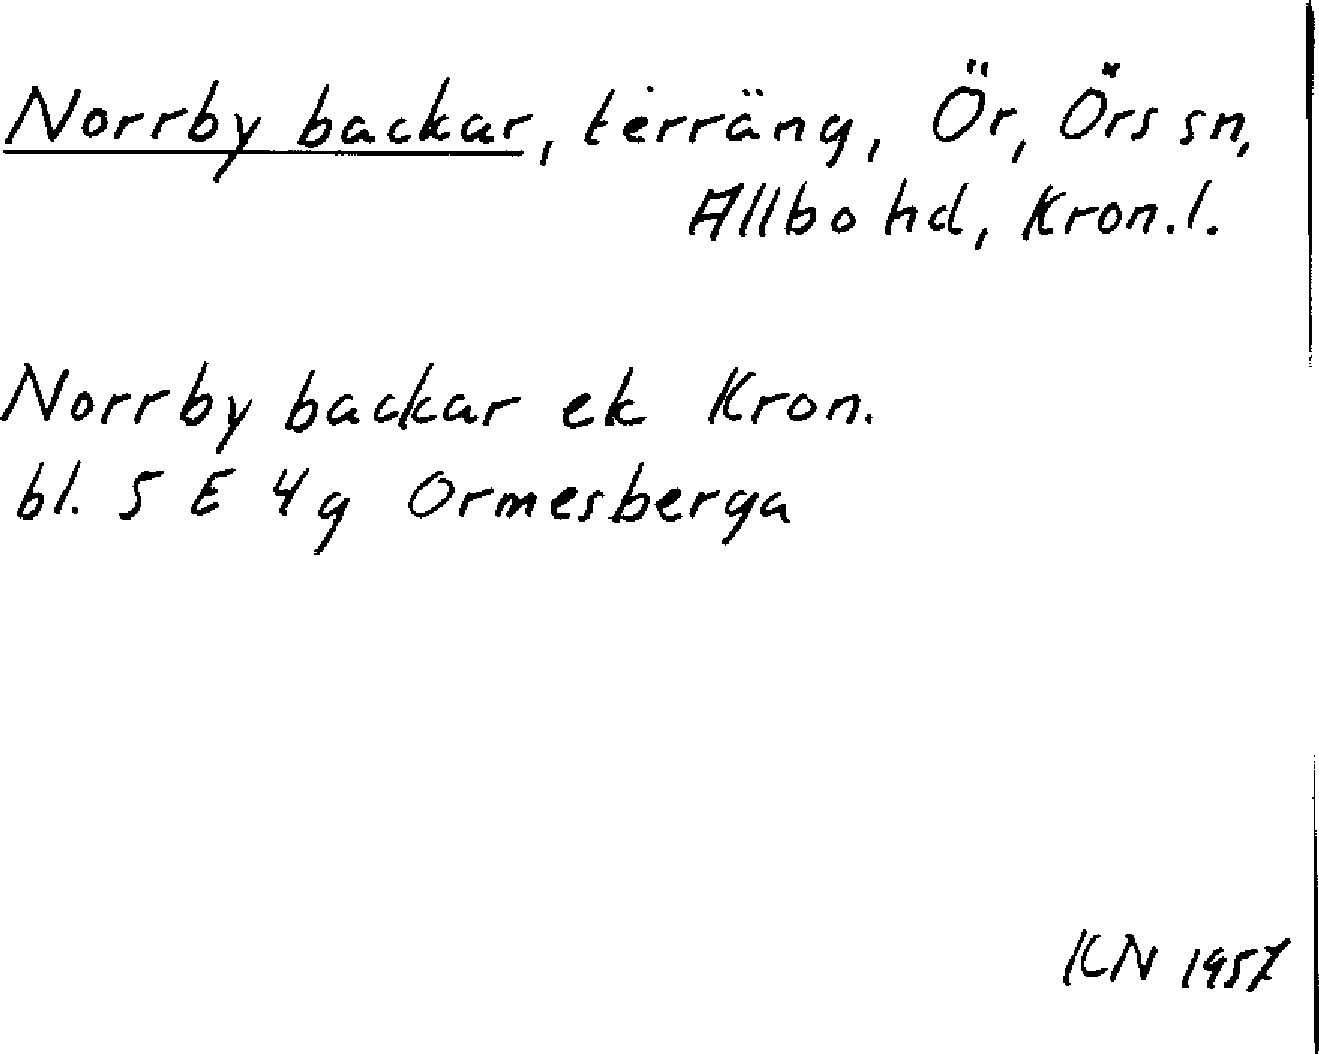 Norrby backar, terräng, Ör, Örs sn,
Allbo hd, Kron.l.
Norrby backar ek Kron.
bl. 5 E 4g Ormesberga
KN 1957